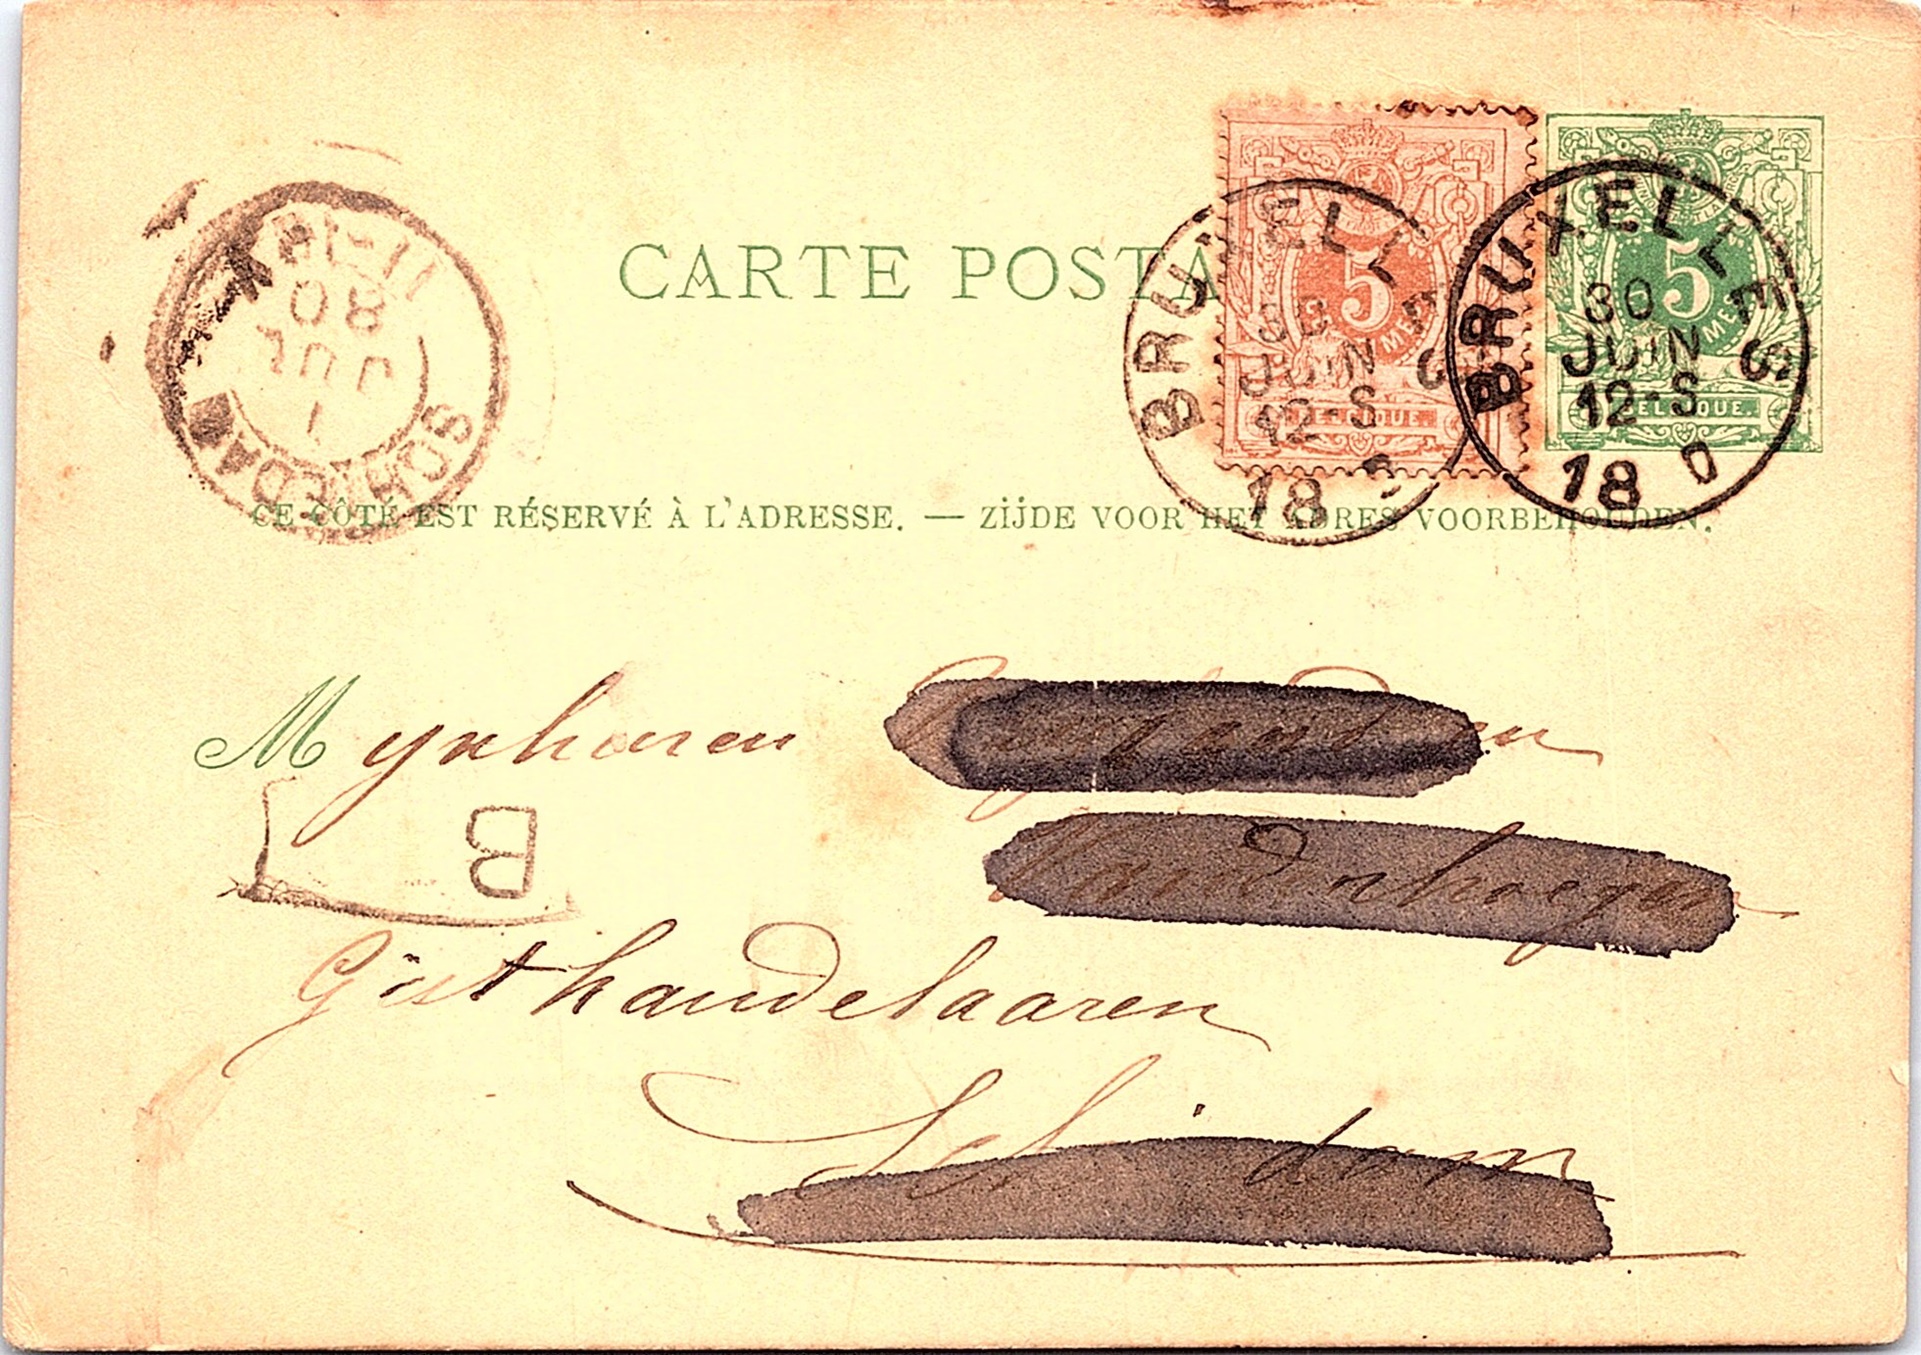 CARTE POSTA
5
BELGIQUE.
5
BELGIQUE.
BRUXELLES
30
JUIN
12-S
18
BRUXELLES
30
JUIN
12-S
18 D
SCHIEDAM
1
JUL
80
CE CÔTÉ EST RÉSERVÉ À L'ADRESSE. — ZIJDE VOOR HET ADRES VOORBEHOUDEN.
Mynheeren
B
Gisthandelaaren